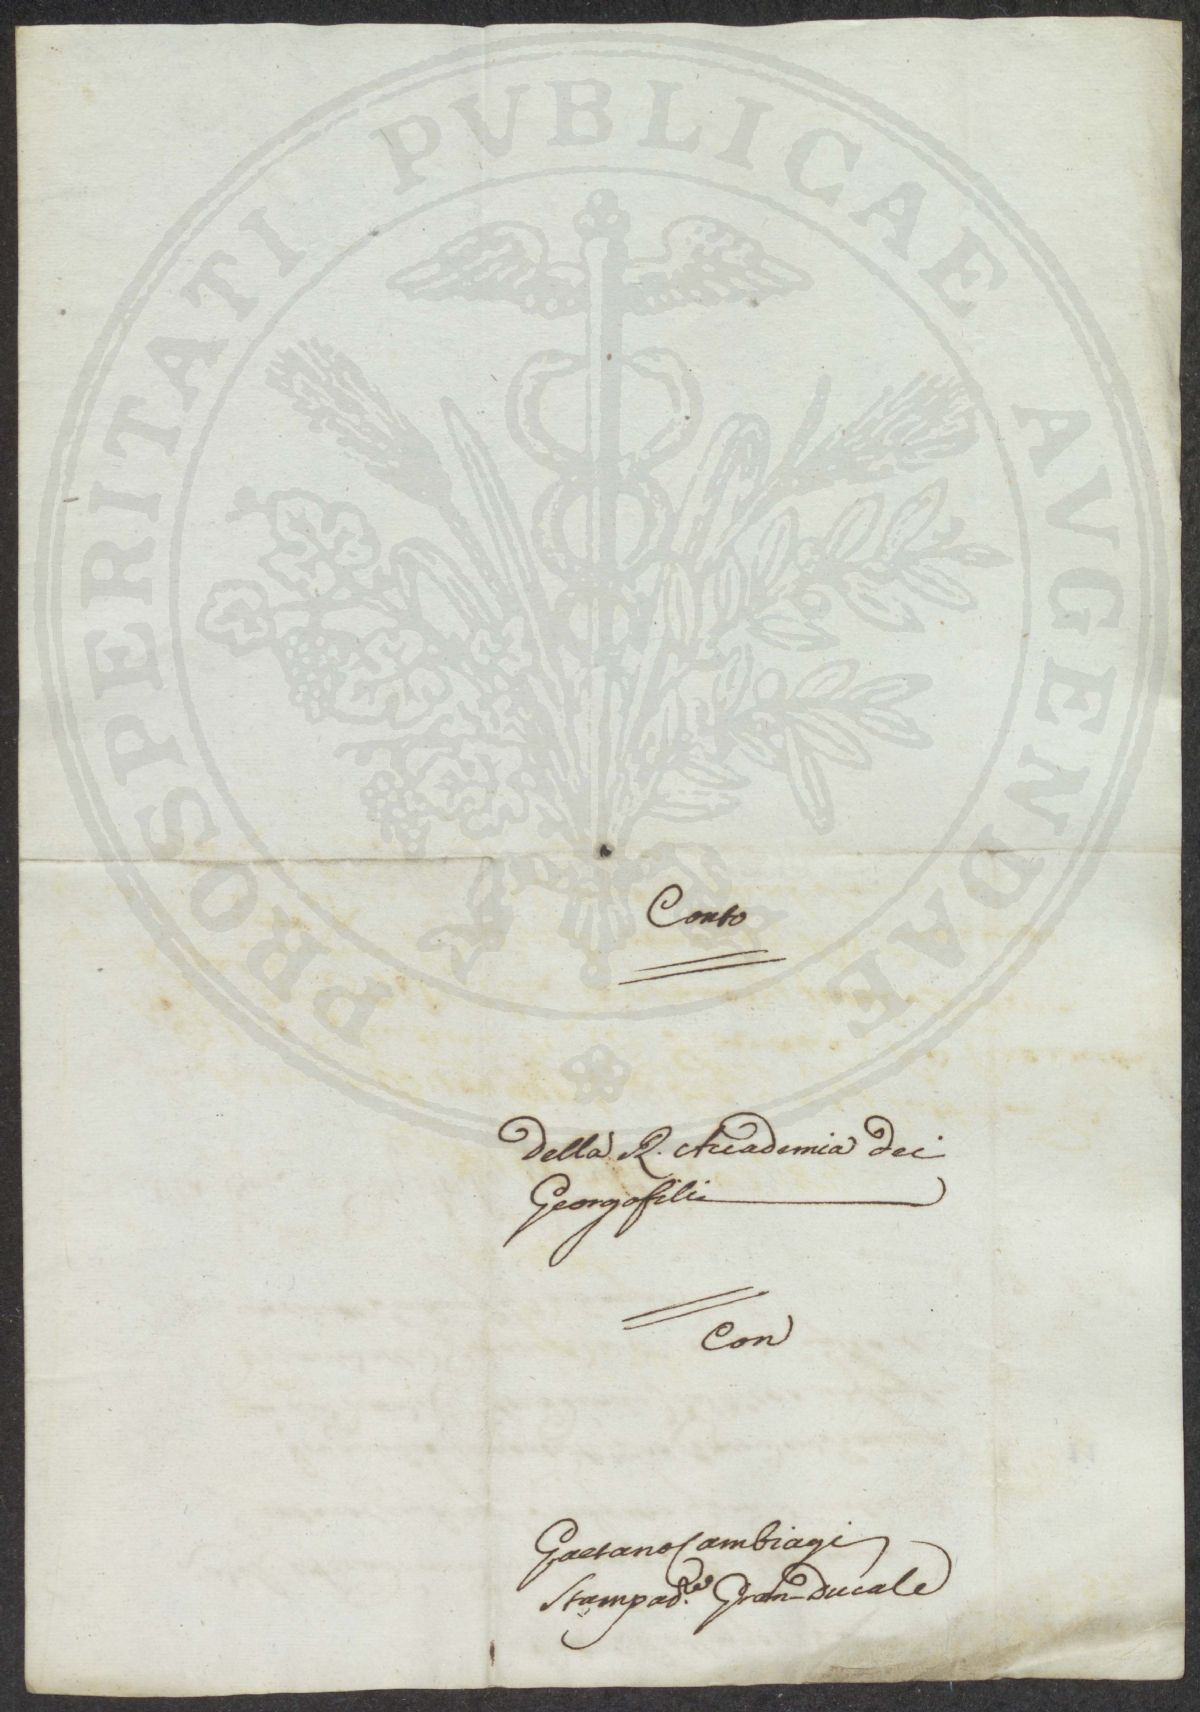 PROSPERITATI PVBLICAE AVGENDAE
Conto
Della R. Accademia dei
Georgofili
Con
Gaetano Cambiagi
Stampad.re Gran-Ducale